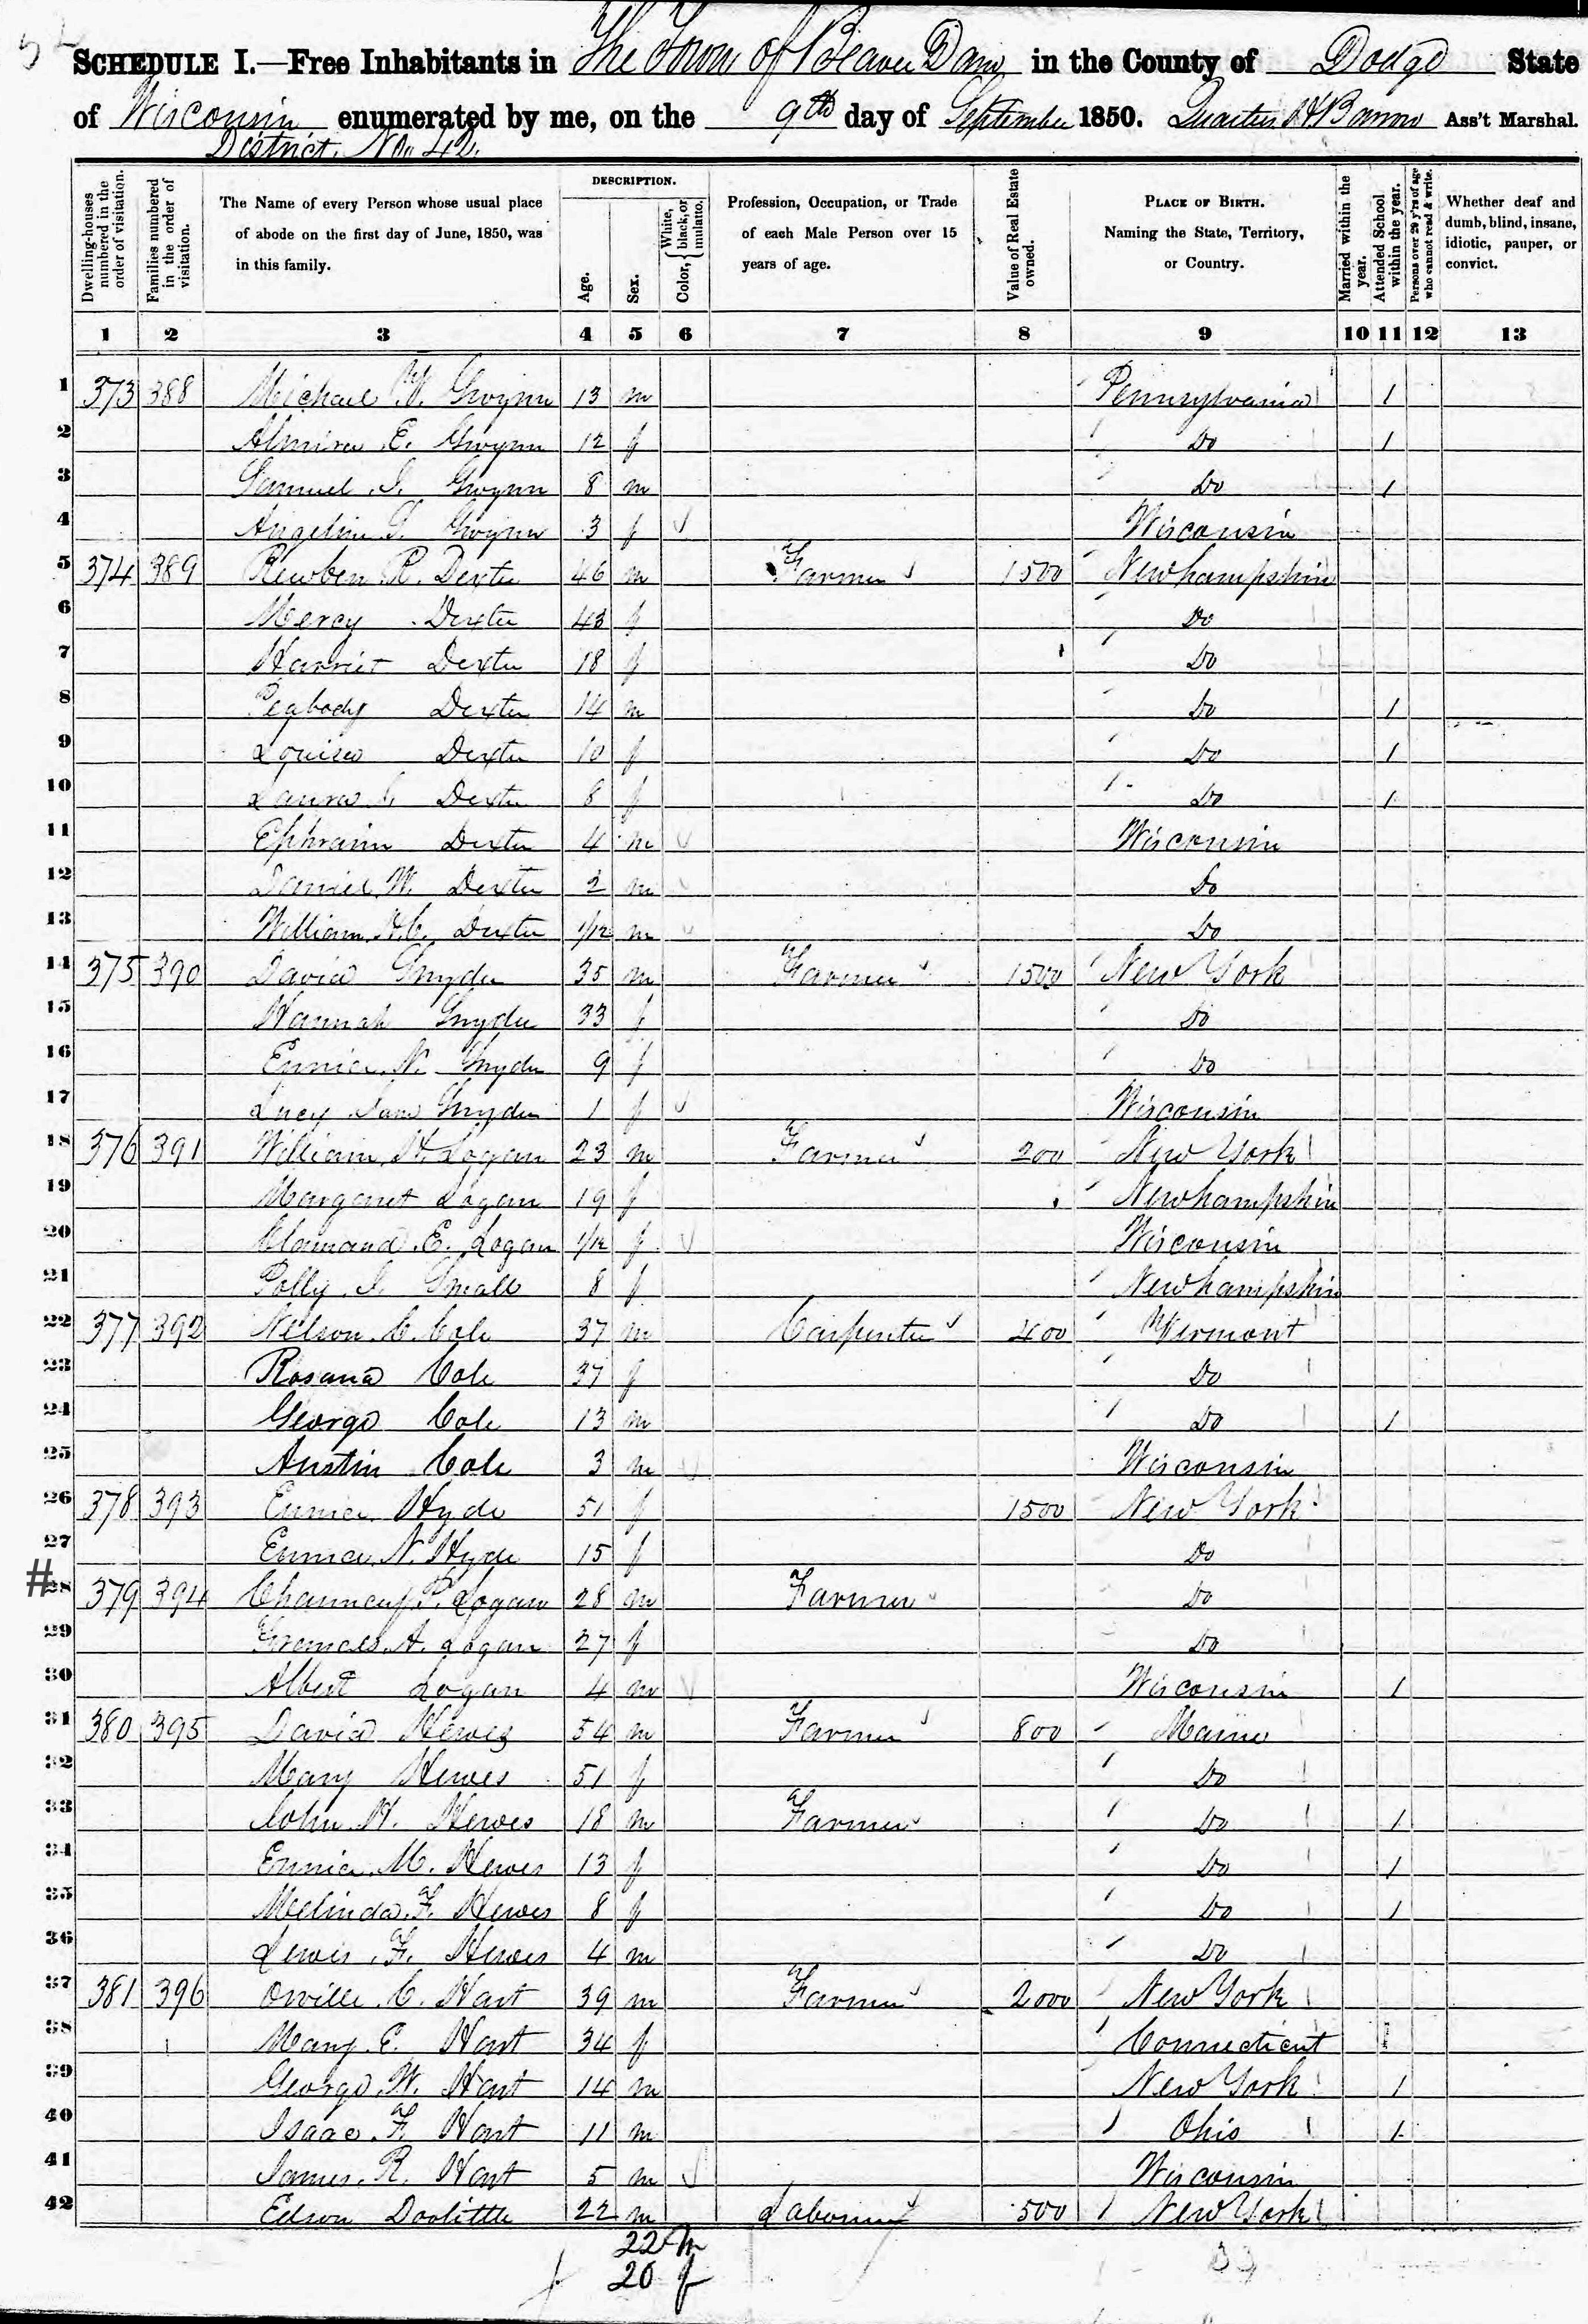 SCHEDULE I.—Free Inhabitants in The Town of Beaver Dam in the County of Dodge State
of Wisconsin enumerated by me, on the 9th day of September 1850. Barrow Ass't Marshal.
District No. 42.
Dwelling-houses numbered in the order of visitation.
Families numbered in the order of visitation.
The Name of every Person whose usual place of abode on the first day of June, 1850, was in this family.
DESCRIPTION.
Age.
Sex.
Color, { White, black, or mulatto.
Profession, Occupation, or Trade of each Male Person over 15 years of age.
Value of Real Estate owned.
PLACE OF BIRTH. Naming the State, Territory, or Country.
Married within the year.
Attended School within the year.
Persons over 20 y'rs of age who cannot read & write.
Whether deaf and dumb, blind, insane, idiotic, pauper, or convict.
1 2 3 4 5 6 7 8 9 10 11 12 13
1 373 388 Michael W. Gwynn 13 m Pennsylvania 1
2 Almira E. Gwynn 12 f Do 1
3 Samuel I. Gwynn 8 m Do 1
4 Angelina Gwynn 3 f Wisconsin
5 374 389 Reuben R. Dexter 46 m Farmer 1500 Newhampshire
6 Mercy Dexter 43 f Do
7 Harriet Dexter 18 f Do
8 Peabody Dexter 14 m Do 1
9 Louisa Dexter 10 f Do 1
10 Laura Dexter 8 f Do 1
11 Ephraim Dexter 4 m Wisconsin
12 Daniel W. Dexter 2 m Do
13 William H.C. Dexter 1/12 m Do
14 375 390 David Snyder 35 m Farmer 1500 New York
15 Hannah Snyder 33 f Do
16 Eunice N. Snyder 9 f Do
17 Lucy Jane Snyder 1 f Wisconsin
18 376 391 William H. Logan 23 m Farmer 200 New York
19 Margaret Logan 19 f Newhampshire
20 E. Logan 1/12 f Wisconsin
21 Polly I. Small 8 f Newhampshire
22 377 392 Nelson C. Cole 37 m Carpenter 400 Vermont
23 Rosana Cole 37 f Do
24 George Cole 13 m Do 1
25 Austin Cole 3 m Wisconsin
26 378 393 Eunice Hyde 51 f 1500 New York
27 Eunice N. Hyde 15 f Do
# 28 379 394 Chauncey P. Logan 28 m Farmer Do
29 A. Logan 27 f Do
30 Albert Logan 4 m Wisconsin 1
31 380 395 David Hewes 54 m Farmer 800 Maine
32 Mary Hewes 51 f Do
33 John H. Hewes 18 m Farmer Do 1
34 Eunice M. Hewes 13 f Do 1
35 Melinda F. Hewes 8 f Do 1
36 Lewis F. Hewes 4 m Do
37 381 396 Orville C. Hart 39 m Farmer 2000 New York
38 Mary E. Hart 34 f Connecticut
39 George W. Hart 14 m New York 1
40 Isaac F. Hart 11 m Ohio 1
41 James R. Hart 5 m Wisconsin
42 Edson Doolittle 22 m Laborer 500 New York
22 m
20 f